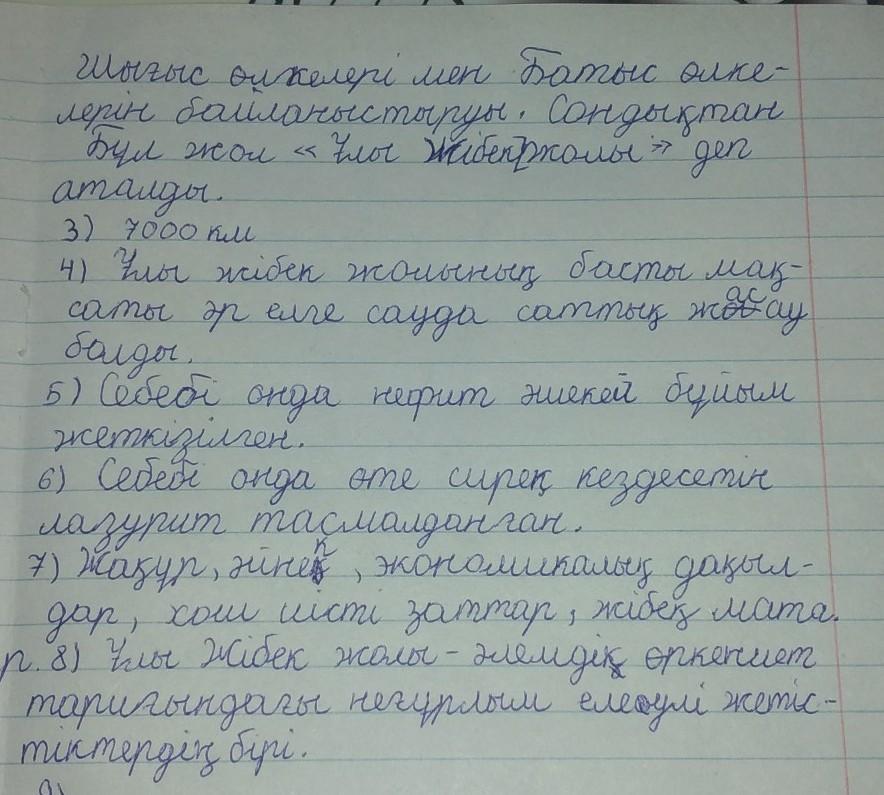 Шығыс өлкелері мен Батыс өлке-
лерін байланыстыруы. Сондықтан
Бұл жол « Ұлы Жібек жолы » деп
аталды.
3) 7000 км
4) Ұлы жібек жолының басты мақ-
саты әр елге сауда саттық жасау
болды.
5) Себебі онда нефрит әшекей бұйым
жеткізілген.
6) Себебі онда өте сирек кездесетін
лазурит тасмалданған.
7) Жақұр, әйнек, экономикалық дақыл-
дар, хош иісті заттар, жібек мата.
р. 8) Ұлы Жібек жолы - әлемдік өркениет
тариғындағы неғұрлым елеулі жетіс-
тіктердің бірі.